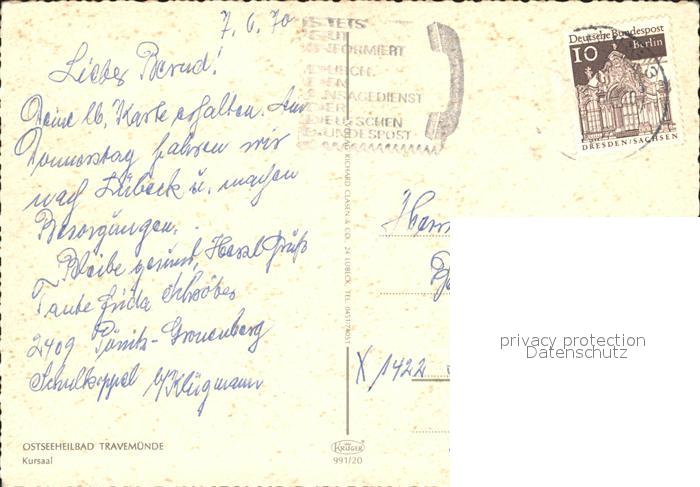 7. 6. 70
STETS
GUT
INFORMIERT
DURCH
DEN
ANSAGEDIENST
DER
DEUTSCHEN
BUNDESPOST
Deutsche Bundespost
10
Berlin
DRESDEN/SACHSEN
Lieber Bernd!
Deine lb. Karte erhalten. Am
Donnerstag fahren wir
nach Lübeck u. machen
Besorgungen.
Bleibe gesund, Herzl Grüß
Tante Frida
2409 Pönitz-Gronenberg
Schulkoppel b/Klügmann
RICHARD CLASEN & CO. 24 LÜBECK, TEL. 0451/74051
X 1422
privacy protection
Datenschutz
OSTSEEHEILBAD TRAVEMÜNDE
Kursaal
KRÜGER
991/20